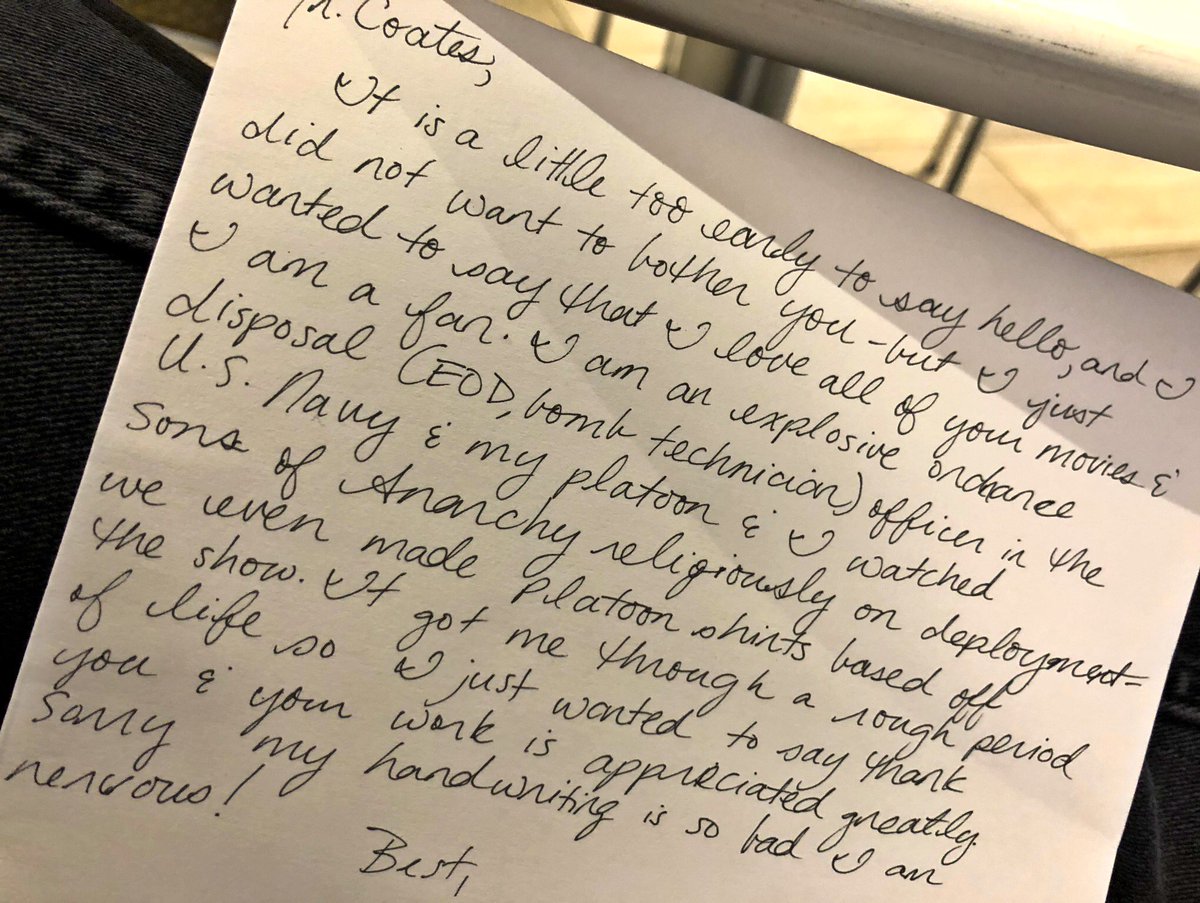 Mr. Coates,
It is a little too early to say hello, and I
did not want to bother you - but I just
wanted to say that I love all of your movies &
I am a fan. I am an explosive ordnance
disposal (EOD, bomb technician) officer in the
U.S. Navy & my platoon & I watched
Sons of Anarchy religiously on deployment-
we even made Platoon shirts based off
the show. It got me through a rough period
of life so I just wanted to say thank
you & your work is appreciated greatly.
Sorry my handwriting is so bad I am
nervous!
Best,